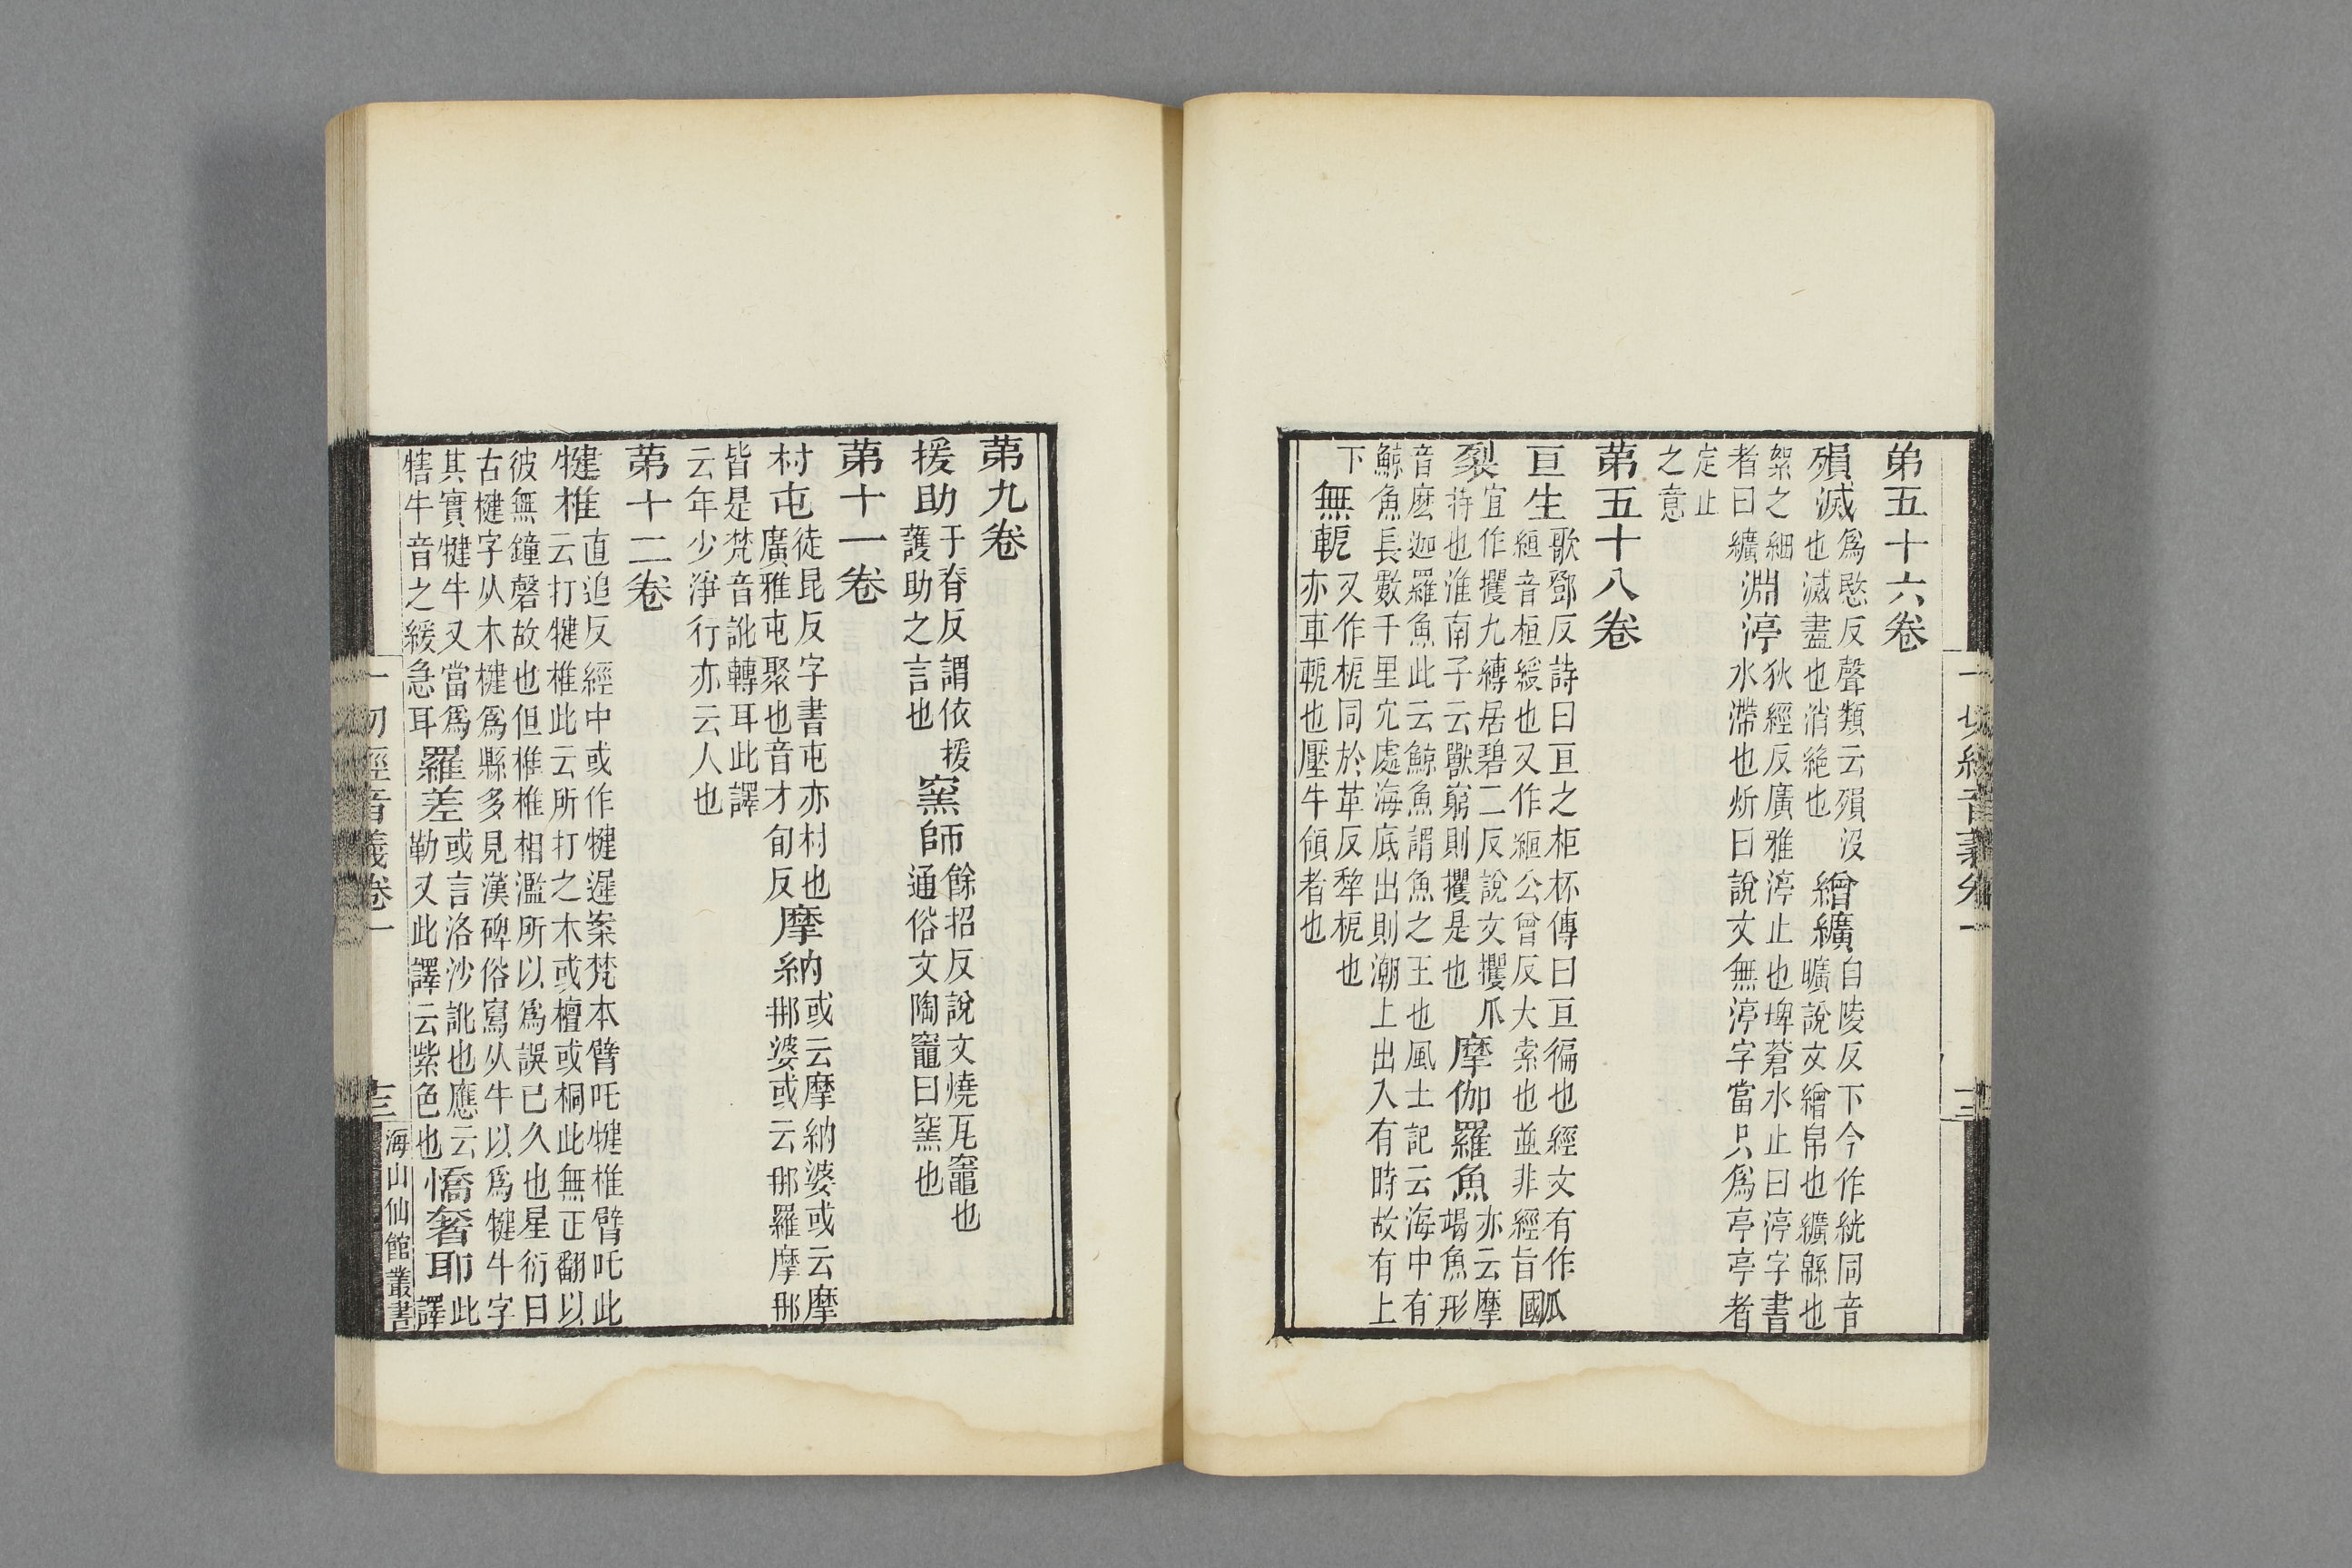 一切經音義卷一
十二
弟五十六卷
殞滅爲愍反聲類云殞沒
也滅盡也消絶也
繒纊自陵反下今作絖同音
曠說文繒帛也纊緜也
絮之細
者曰纊
淵渟狄經反廣雅渟止也埤蒼水止曰渟字書
水滯也炘曰說文無渟字當只爲亭亭者
定止
之意
苐五十八卷
亘生歌鄧反詩曰亘之柜杯傳曰亘徧也經文有作㼌
縆音桓緩也又作縆公曾反大索也並非經旨國
裂宜作攫九縛居碧二反說文攫爪
持也淮南子云獸窮則攫是也
摩伽羅魚亦云摩
竭魚形
音麼迦羅魚此云鯨魚謂魚之王也風土記云海中有
鯨魚長數千里穴處海底出則潮上出入有時故有上
下
無軶又作枙同於革反犂枙也
亦車軶也壓牛領者也
苐九卷
援助于脊反謂依援
護助之言也
窯師餘招反說文燒瓦竈也
通俗文陶竈曰窯也
苐十一卷
村屯徒昆反字書屯亦村也
廣雅屯聚也音才旬反
摩納或云摩納婆或云摩
那婆或云那羅摩那
皆是梵音訛轉耳此譯
云年少淨行亦云人也
苐十二卷
犍椎直追反經中或作犍遲案梵本臂吒犍椎臂吒此
云打犍椎此云所打之木或檀或桐此無正翻以
彼無鐘磬故也但椎椎相濫所以爲誤已久也星衍曰
古楗字从木楗爲縣多見漢碑俗寫从牛以爲犍牛字
其實犍牛又當爲
犗牛音之緩急耳
羅差或言洛沙訛也應云
勒叉此譯云紫色也
憍奢耶此
譯
一切經音義卷一
十三
海山仙館叢書